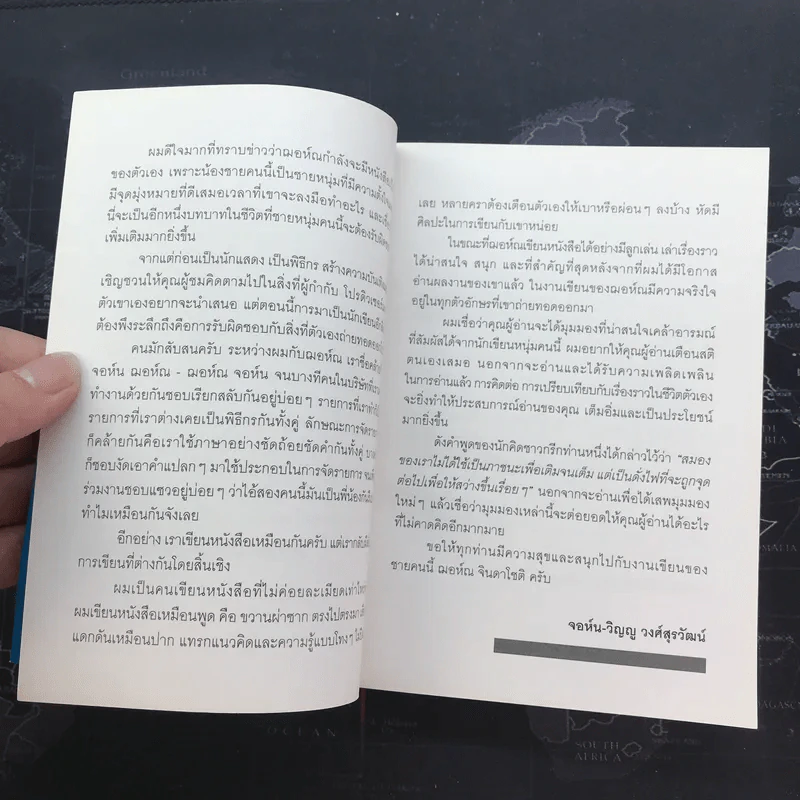 Greenland
ผมดีใจมากที่ทราบข่าวว่าฌอห์ณกำลังจะมีหนังสือ
ของตัวเอง เพราะน้องชายคนนี้เป็นชายหนุ่มที่มีความตั้งใจ
มีจุดมุ่งหมายที่ดีเสมอเวลาที่เขาจะลงมือทำอะไร
นี่จะเป็นอีกหนึ่งบทบาทในชีวิตที่ชายหนุ่มคนนี้จะต้องรับผิดชอบ
เพิ่มเติมมากยิ่งขึ้น
จากแต่ก่อนเป็นนักแสดง เป็นพิธีกร สร้างความบันเทิง
เชิญชวนให้คุณผู้ชมคิดตามไปในสิ่งที่ผู้กำกับ โปรดิวเซอร์
ตัวเขาเองอยากจะนำเสนอ แต่ตอนนี้การมาเป็นนักเขียน
ต้องพึงระลึกถึงคือการรับผิดชอบกับสิ่งที่ตัวเองถ่ายทอด
คนมักสับสนครับ ระหว่างผมกับฌอห์ณ เราชื่อคล้าย
จอห์น ฌอห์ณ - ฌอห์ณ จอห์น จนบางทีคนในบริษัทที่
ทำงานด้วยกันชอบเรียกสลับกันอยู่บ่อยๆ รายการที่เราทำ
รายการที่เราต่างเคยเป็นพิธีกรกันทั้งคู่ ลักษณะการจัดรายการ
ก็คล้ายกันคือเราใช้ภาษาอย่างชัดถ้อยชัดคำกันทั้งคู่
ก็ชอบงัดเอาคำแปลกๆ มาใช้ประกอบในการจัดรายการ
ร่วมงานชอบแซวอยู่บ่อยๆ ว่าไอ้สองคนนี้มันเป็นพี่น้องกัน
ทำไมเหมือนกันจังเลย
อีกอย่าง เราเขียนหนังสือเหมือนกันครับ แต่เรากลับมี
การเขียนที่ต่างกันโดยสิ้นเชิง
ผมเป็นคนเขียนหนังสือที่ไม่ค่อยละเมียดเท่าไหร่
ผมเขียนหนังสือเหมือนพูด คือ ขวานผ่าซาก ตรงไปตรงมา
แดกดันเหมือนปาก แทรกแนวคิดและความรู้แบบโทงๆ
เลย หลายคราต้องเตือนตัวเองให้เบาหรือผ่อนๆ ลงบ้าง หัดมี
ศิลปะในการเขียนกับเขาหน่อย
ในขณะที่ฌอห์ณเขียนหนังสือได้อย่างมีลูกเล่น เล่าเรื่องราว
ได้น่าสนใจ สนุก และที่สำคัญที่สุดหลังจากที่ผมได้มีโอกาส
อ่านผลงานของเขาแล้ว ในงานเขียนของฌอห์ณมีความจริงใจ
อยู่ในทุกตัวอักษรที่เขาถ่ายทอดออกมา
ผมเชื่อว่าคุณผู้อ่านจะได้มุมมองที่น่าสนใจเคล้าอารมณ์
ที่สัมผัสได้จากนักเขียนหนุ่มคนนี้ ผมอยากให้คุณผู้อ่านเตือนสติ
ตนเองเสมอ นอกจากจะอ่านและได้รับความเพลิดเพลิน
ในการอ่านแล้ว การคิดต่อ การเปรียบเทียบกับเรื่องราวในชีวิตตัวเอง
จะยิ่งทำให้ประสบการณ์อ่านของคุณ เต็มอิ่มและเป็นประโยชน์
มากยิ่งขึ้น
ดังคำพูดของนักคิดชาวกรีกท่านหนึ่งได้กล่าวไว้ว่า “สมอง
ของเราไม่ได้ใช้เป็นภาชนะเพื่อเติมจนเต็ม แต่เป็นดั่งไฟที่จะถูกจุด
ต่อไปเพื่อให้สว่างขึ้นเรื่อยๆ” นอกจากจะอ่านเพื่อได้เสพมุมมอง
ใหม่ๆ แล้วเชื่อว่ามุมมองเหล่านี้จะต่อยอดให้คุณผู้อ่านได้อะไร
ที่ไม่คาดคิดอีกมากมาย
ขอให้ทุกท่านมีความสุขและสนุกไปกับงานเขียนของ
ชายคนนี้ ฌอห์ณ จินดาโชติ ครับ
จอห์น-วิญญู วงศ์สุรวัฒน์
OCEAN
SOUTH
AFRICA